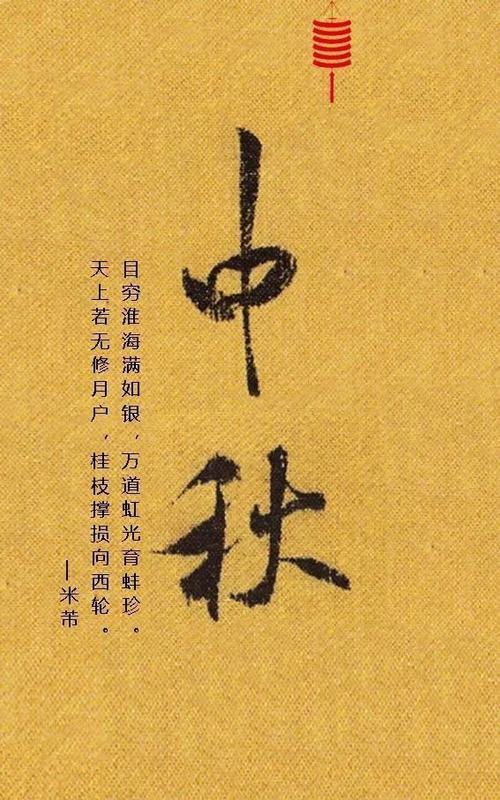 中秋
目穷淮海满如银，万道虹光育蚌珍。
天上若无修月户，桂枝撑损向西轮。
—米芾